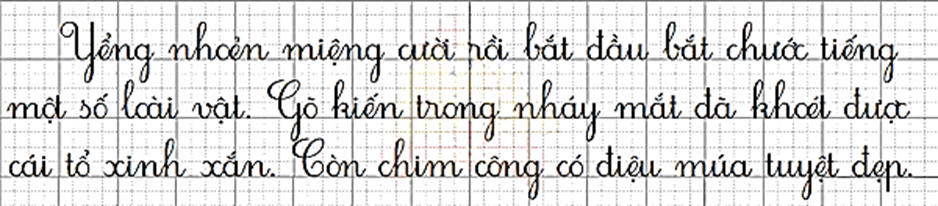 Yểng nhoẻn miệng cười rồi bắt đầu bắt chước tiếng
một số loài vật. Gõ kiến trong nháy mắt đã khoét được
cái tổ xinh xắn. Còn chim công có điệu múa tuyệt đẹp.